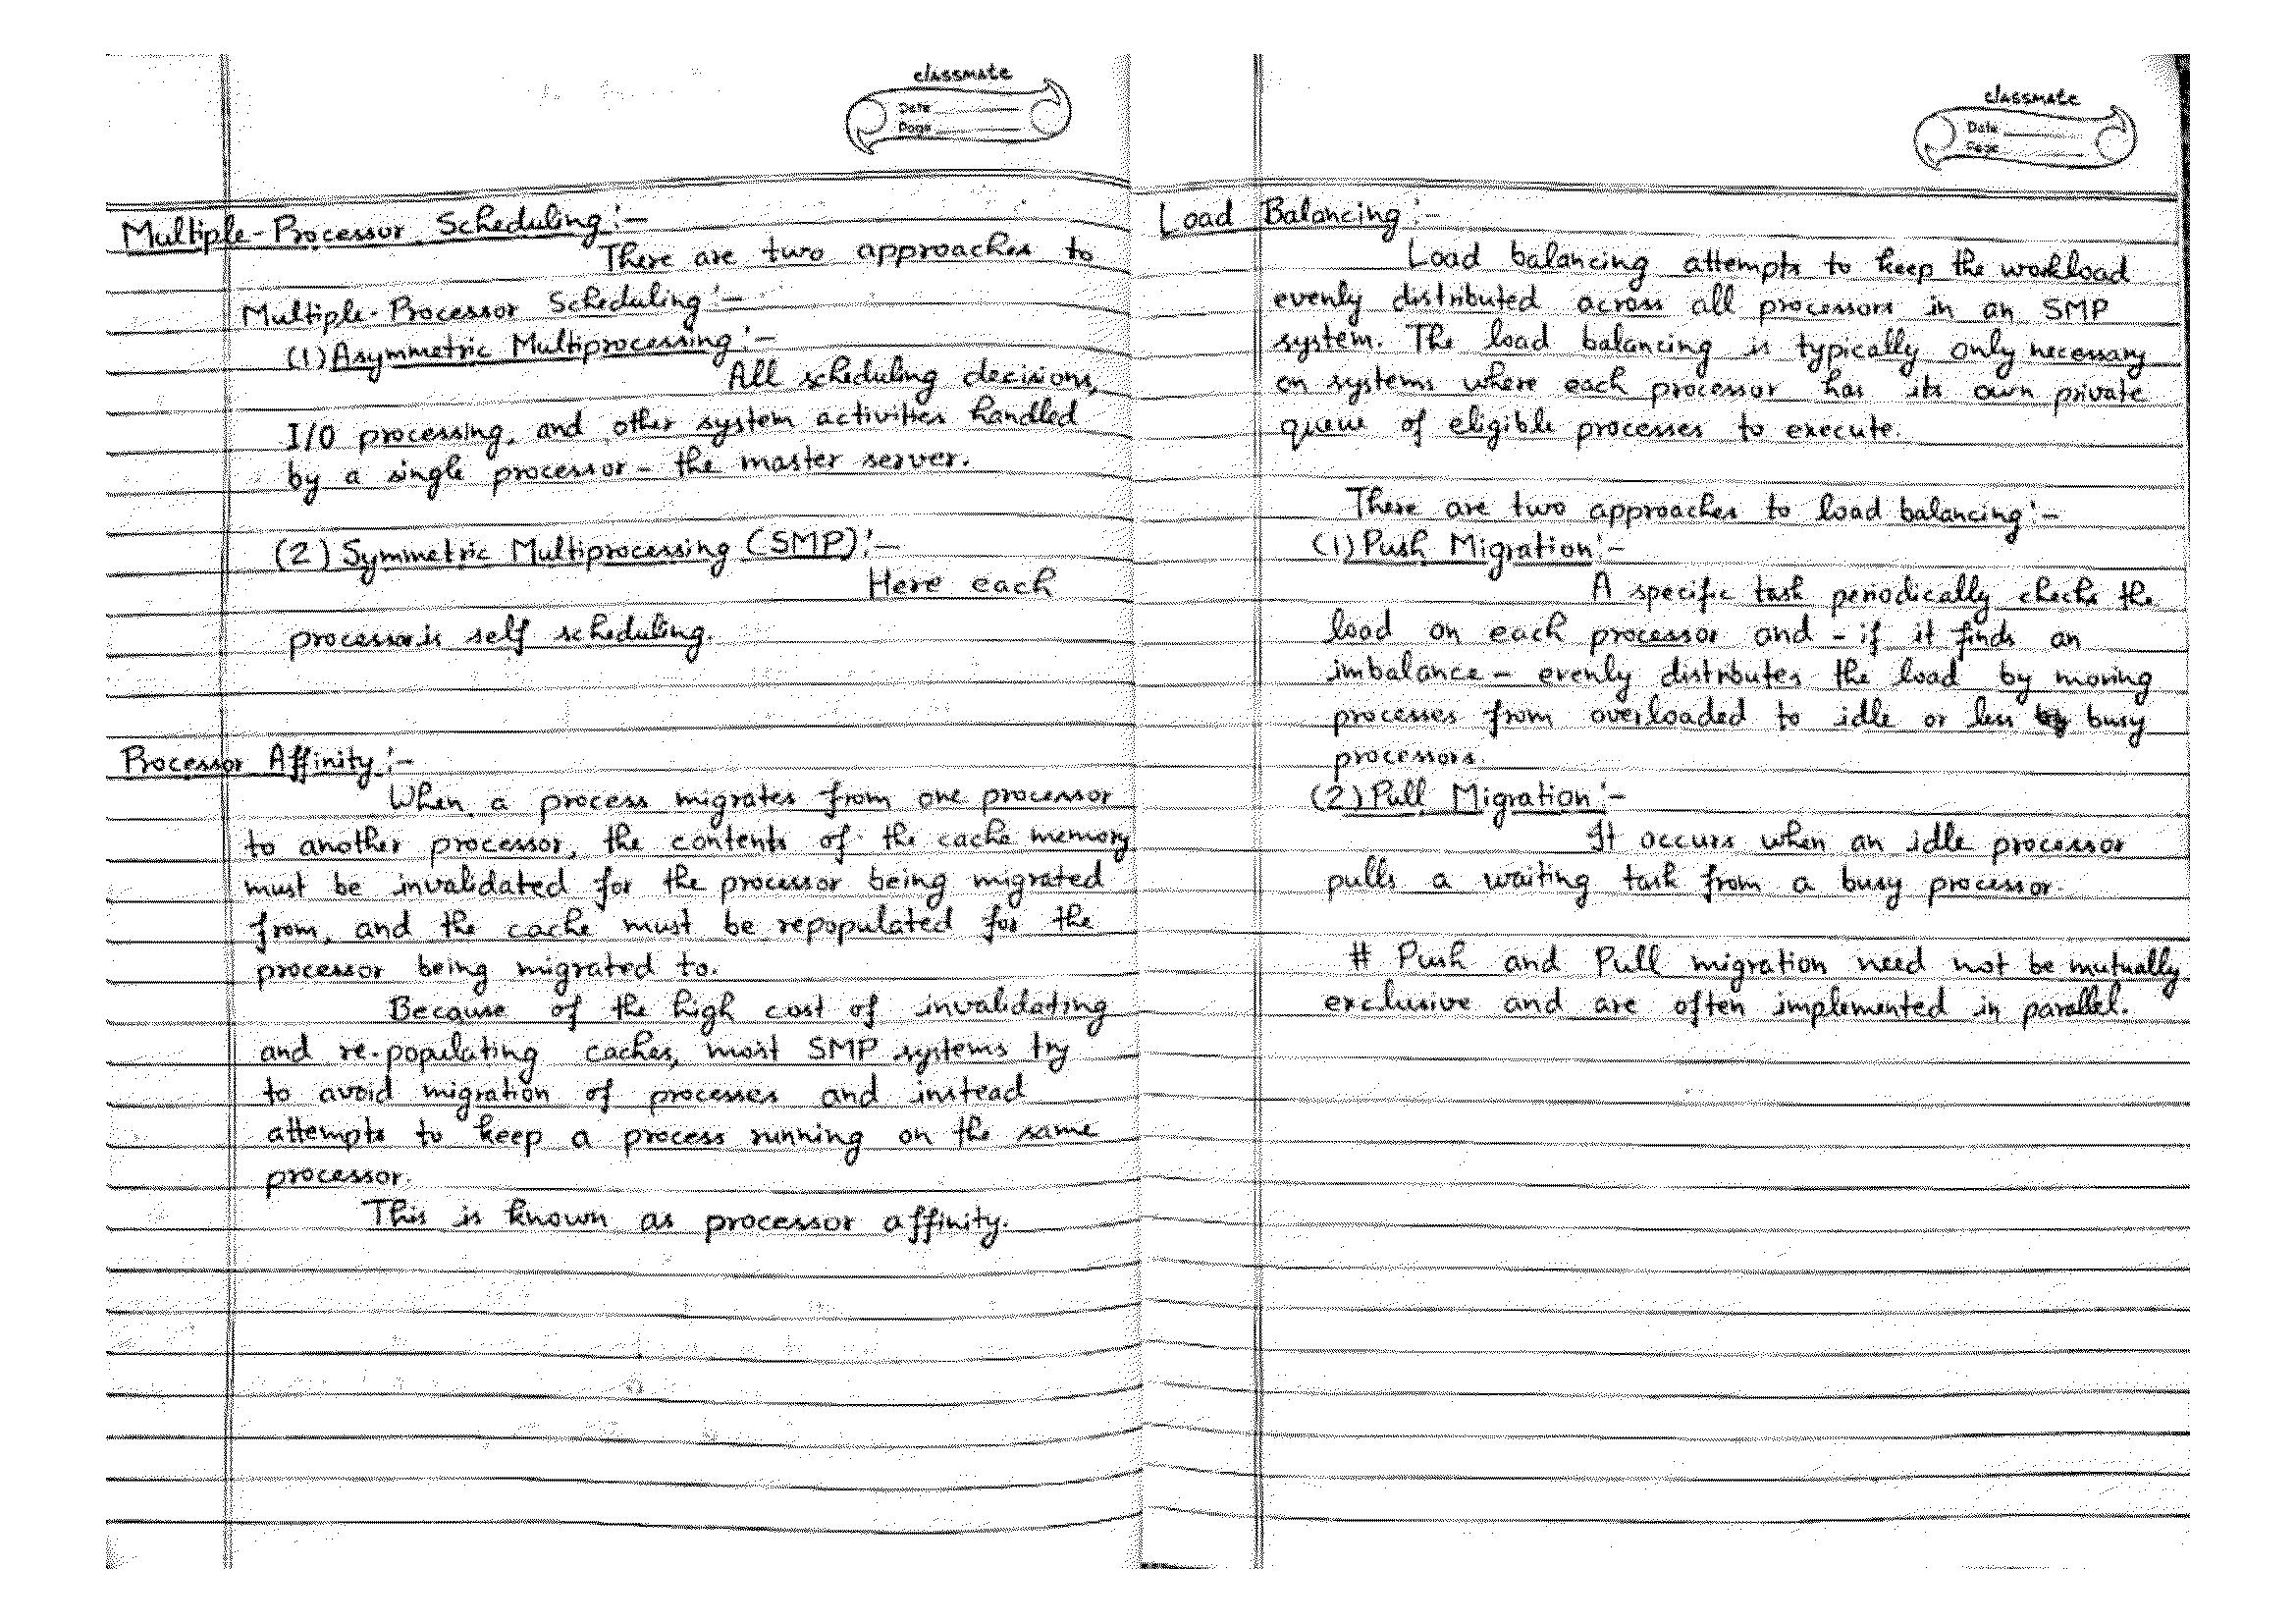 classmate
Date
Page
Multiple-Processor Scheduling:-
There are two approaches to
Multiple-Processor Scheduling:-
(1) Asymmetric Multiprocessing:-
All scheduling decisions,
I/O processing, and other system activities handled
by a single processor - the master server.
(2) Symmetric Multiprocessing (SMP):-
Here each
processor is self scheduling.
Processor Affinity:-
When a process migrates from one processor
to another processor, the contents of the cache memory
must be invalidated for the processor being migrated
from, and the cache must be repopulated for the
processor being migrated to.
Because of the high cost of invalidating
and re-populating caches, most SMP systems try
to avoid migration of processes and instead
attempts to keep a process running on the same
processor.
This is known as processor affinity.
classmate
Date
Page
Load Balancing:-
Load balancing attempts to keep the workload
evenly distributed across all processors in an SMP
system. The load balancing is typically only necessary
on systems where each processor has its own private
queue of eligible processes to execute.
There are two approaches to load balancing:-
(1) Push Migration:-
A specific task periodically checks the
load on each processor and - if it finds an
imbalance - evenly distributes the load by moving
processes from overloaded to idle or less busy
processors.
(2) Pull Migration:-
It occurs when an idle processor
pulls a waiting task from a busy processor.
# Push and Pull migration need not be mutually
exclusive and are often implemented in parallel.